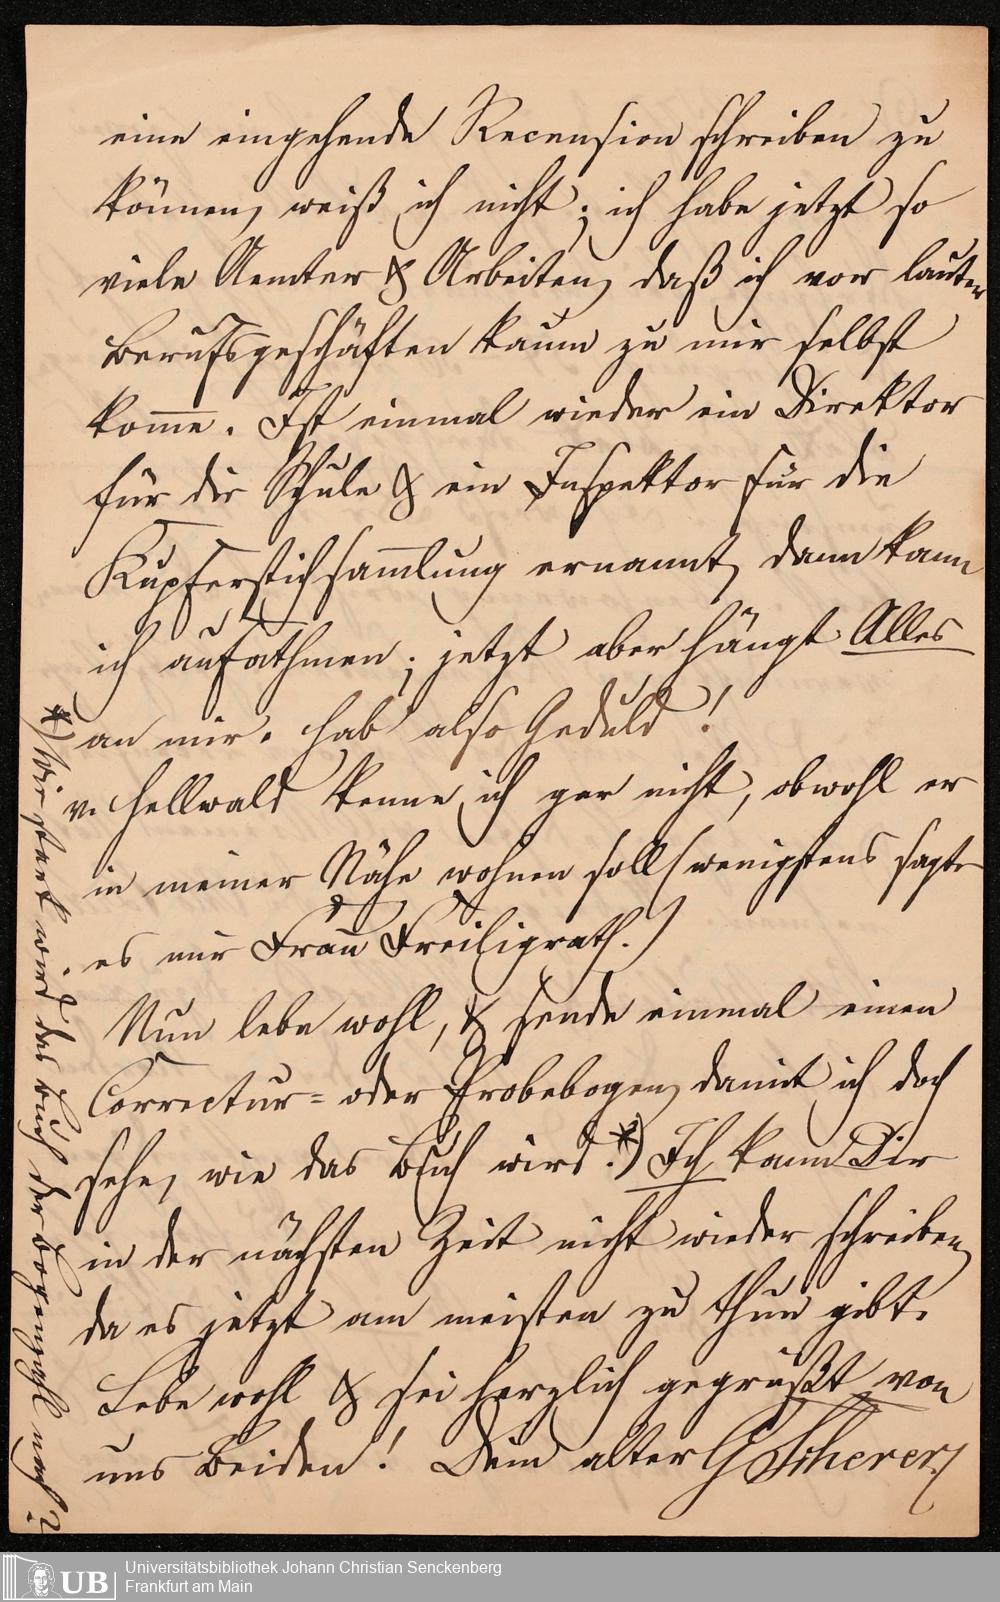 eine eingehende Recension schreiben zu
können, weiß ich nicht; ich habe jetzt so
viele Aemter & Arbeiten, daß ich vor lauter
Berufsgeschäften kaum zu mir selbst
kom̄e. Ist einmal wieder ein Direktor
für die Schule & ein Inspektor für die
Kupferstichsam̄lung ernannt, dann kann
ich aufathmen; jetzt aber hängt Alles
an mir. Hab also Geduld!
v. Hellwald kenne ich gar nicht, obwohl er
in meiner Nähe wohnen soll (wenigstens sagte
es mir Frau Freiligrath.)
Nun lebe wohl, & sende einmal einen
Correctur= oder Probebogen, damit ich doch
sehe, wie das Buch wird.*) Ich kann Dir
in der nächsten Zeit nicht wieder schreiben,
da es jetzt am meisten zu thun gibt.
Lebe wohl & sei herzlich gegrüßt von
uns Beiden! Dein alter G Scherer
*) Wie stark wird das Buch der Bogenzahl nach?
Universitätsbibliothek Johann Christian Senckenberg
Frankfurt am Main
UB